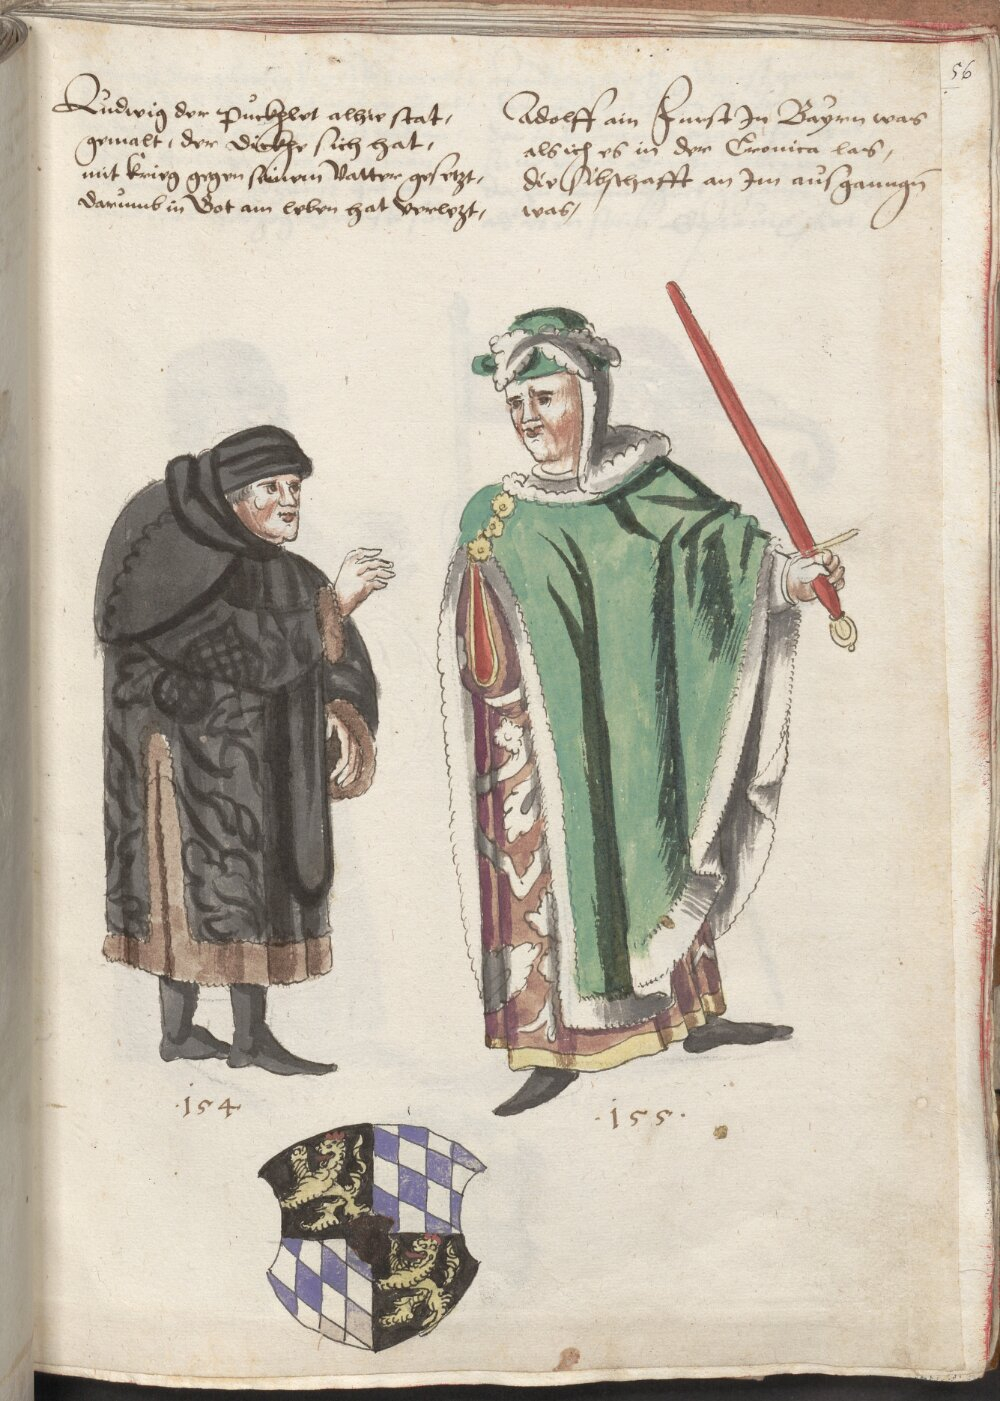 56
Ludwig der Puckhlet alhie stat,
gemalt, der dickhe sich hat,
mit krieg gegen seinem Vatter gesetzt,
darumb in Got am leben hat verlezt,
Adolff ain Furst In Bayrn was
als ich es in der Cronica las,
die Sibschafft an Im ausganngn
was,
·154·
·155·